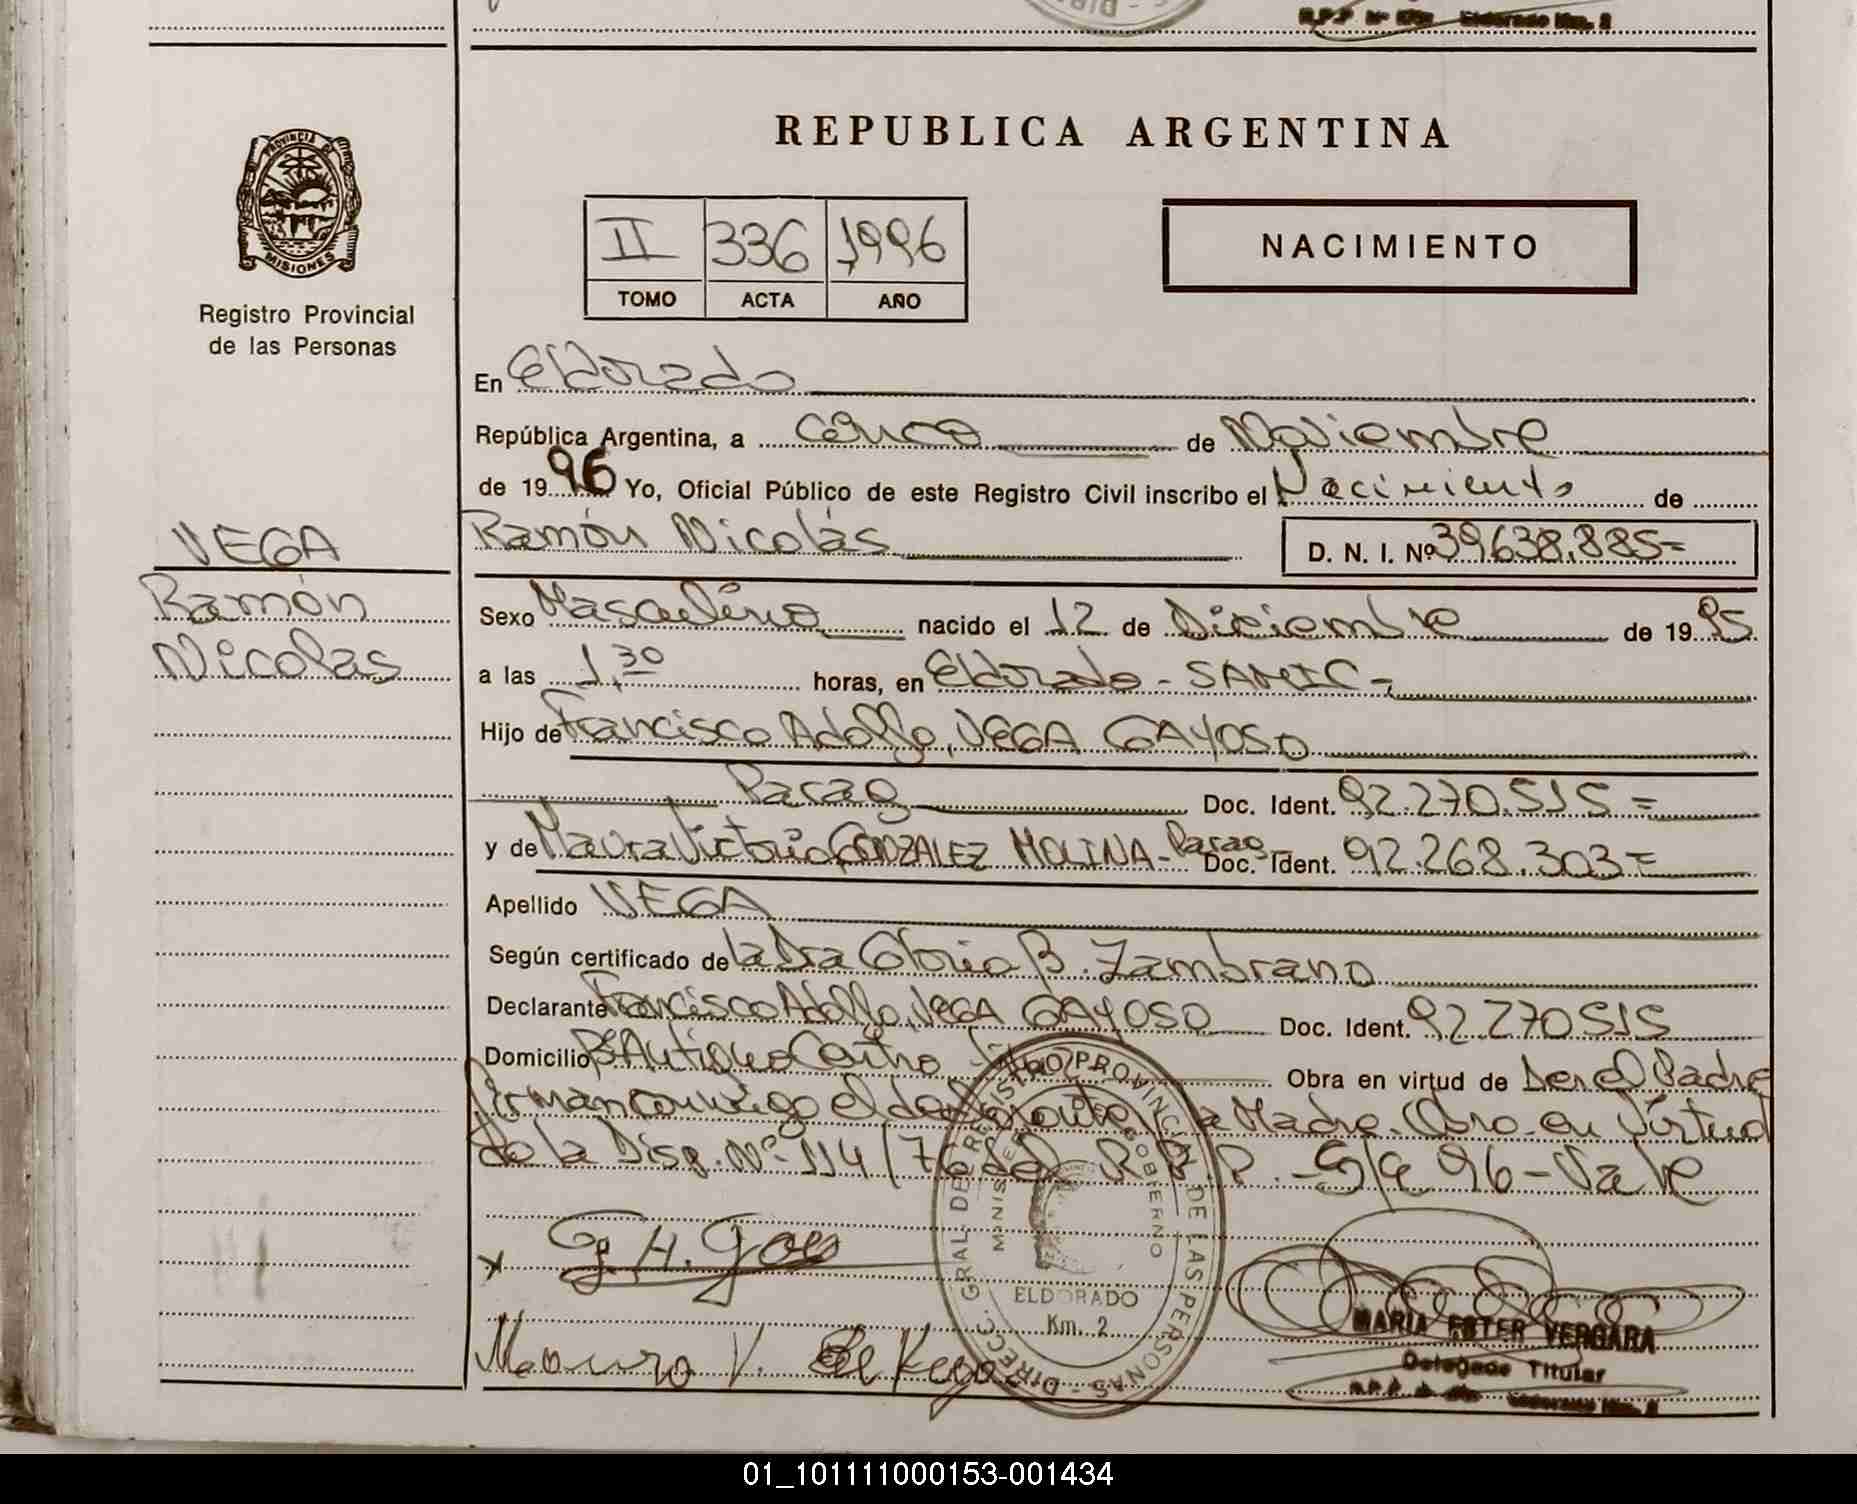 R.P.P Nº Eldorado Km. 2
REPUBLICA ARGENTINA
PROVINCIA DE MISIONES
Registro Provincial
de las Personas
II 336 1996
TOMO ACTA AÑO
NACIMIENTO
En Eldorado
República Argentina, a Cinco de Noviembre
de 1996 Yo, Oficial Público de este Registro Civil inscribo el Nacimiento de
VEGA
Ramón Nicolás D. N. I. Nº 39.638.885=
Ramón
Nicolas
Sexo Masculino nacido el 12 de Diciembre de 1995
a las 1,30 horas, en Eldorado - SAMIC -
Hijo de Francisco Adolfo, VEGA GAYOSO
Parag Doc. Ident. 92.270.515=
y de Maura Victoria GONZALEZ MOLINA - Parag - Doc. Ident. 92.268.303=
Apellido VEGA
Según certificado de la Dra Gloria B. Zambrano
Declarante Francisco Adolfo, VEGA GAYOSO Doc. Ident. 92270515
Domicilio Bº Antiguo Obra en virtud de Ser el Padre
firman conmigo el declarante y la Madre. Obro en Virtud
de la Disp. Nº 114/76 del R.P.P. - 5/9 96 - Vale
DIREC. GRAL. DE REGISTRO PROVINCIAL DE LAS PERSONAS
MINISTERIO DE GOBIERNO
ELDORADO
Km. 2
x
Maura V. de Vega
MARIA ESTER VERGARA
Delegada Titular
01_101111000153-001434